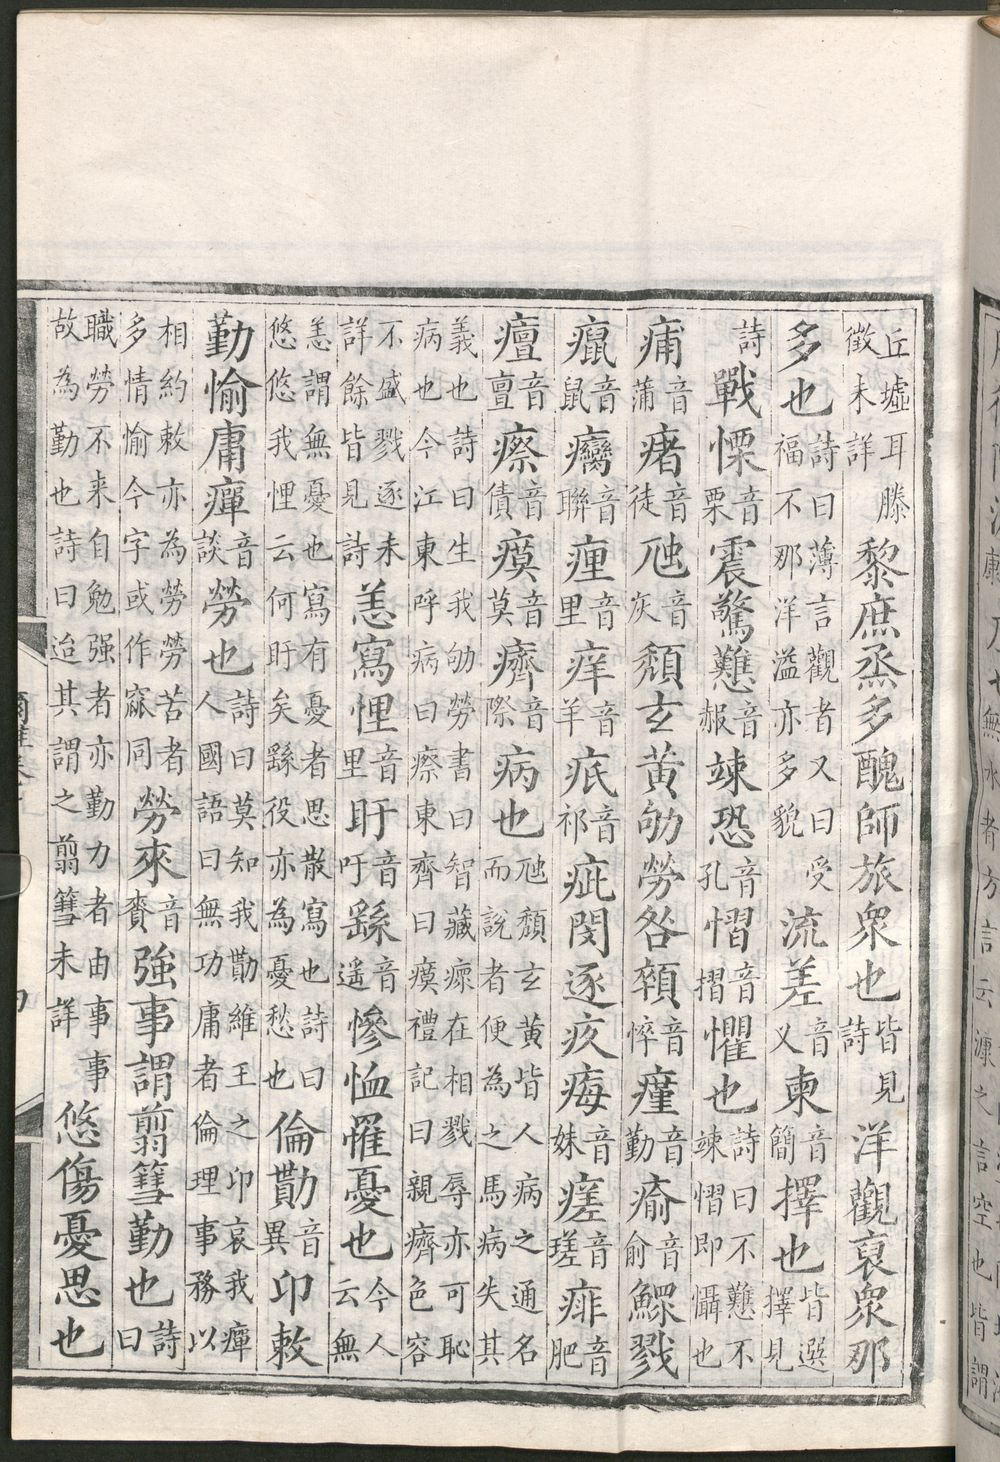 丘墟耳滕徵未詳黎庶烝多醜師旅衆也皆見詩洋觀裒衆那
多也詩曰薄言觀者又曰受福不那洋溢亦多貌流差音又柬音簡擇也皆選擇見
詩戰慄音栗震驚戁音赧竦恐音孔慴音摺懼也詩曰不戁不竦慴即懾也
痡音蒲瘏音徒虺音灰頹玄黃劬勞咎顇音悴瘽音勤瘉音俞鰥戮
癙音鼠癵音聯瘇音里痒音羊疷音祁疵閔逐疚痗音妹瘥音瑳痱音肥
㿊音亶瘵音債瘼音莫癠音際病也虺頹玄黃皆人病之通名而說者便為之馬病失其
義也詩曰生我劬勞書曰智藏瘝在相戮辱亦可恥病也今江東呼病曰瘵東齊曰瘼禮記曰親癠色容
不盛戮逐未詳餘皆見詩恙寫悝音里盱音吁繇音遙慘恤罹憂也今人云無
恙謂無憂也寫有憂者思散寫也詩曰悠悠我悝云何盱矣繇役亦為憂愁也倫勩音異卭敕
勤愉庸癉音談勞也詩曰莫知我勩維王之卭哀我癉人國語曰無功庸者倫理事務以
相約敕亦為勞勞苦者多情愉今字或作窳同勞來音賚強事謂翦篲勤也詩曰
職勞不来自勉强者亦勤力者由事事故為勤也詩曰迨其謂之翦篲未詳悠傷憂思也